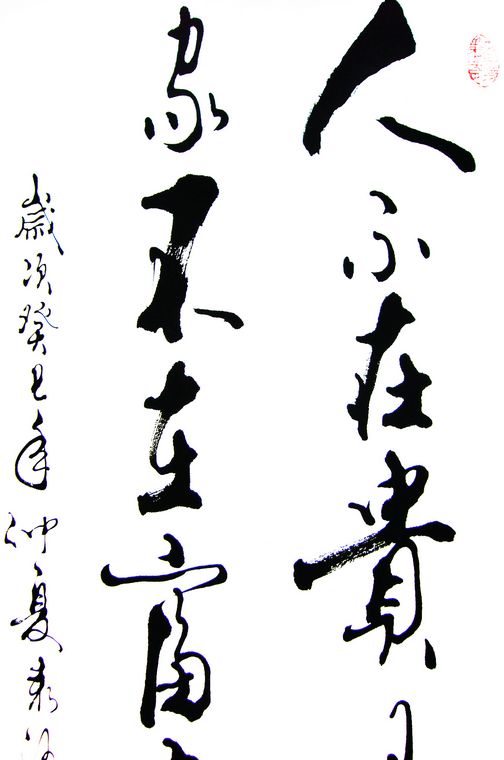 人不在貴
家不在富
歲次癸丑年仲夏